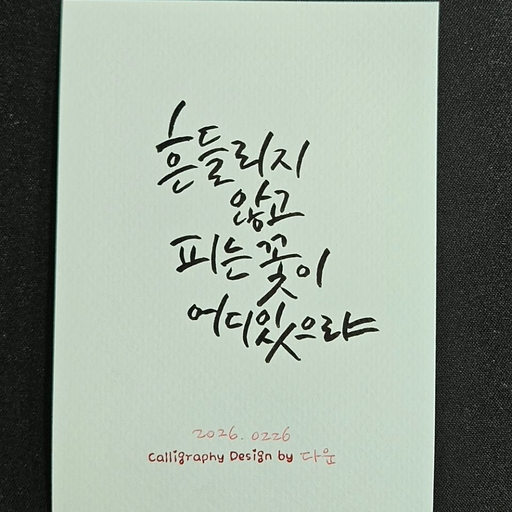 흔들리지
않고
피는 꽃이
어디있으랴
2026. 0226
Calligraphy Design by 다운